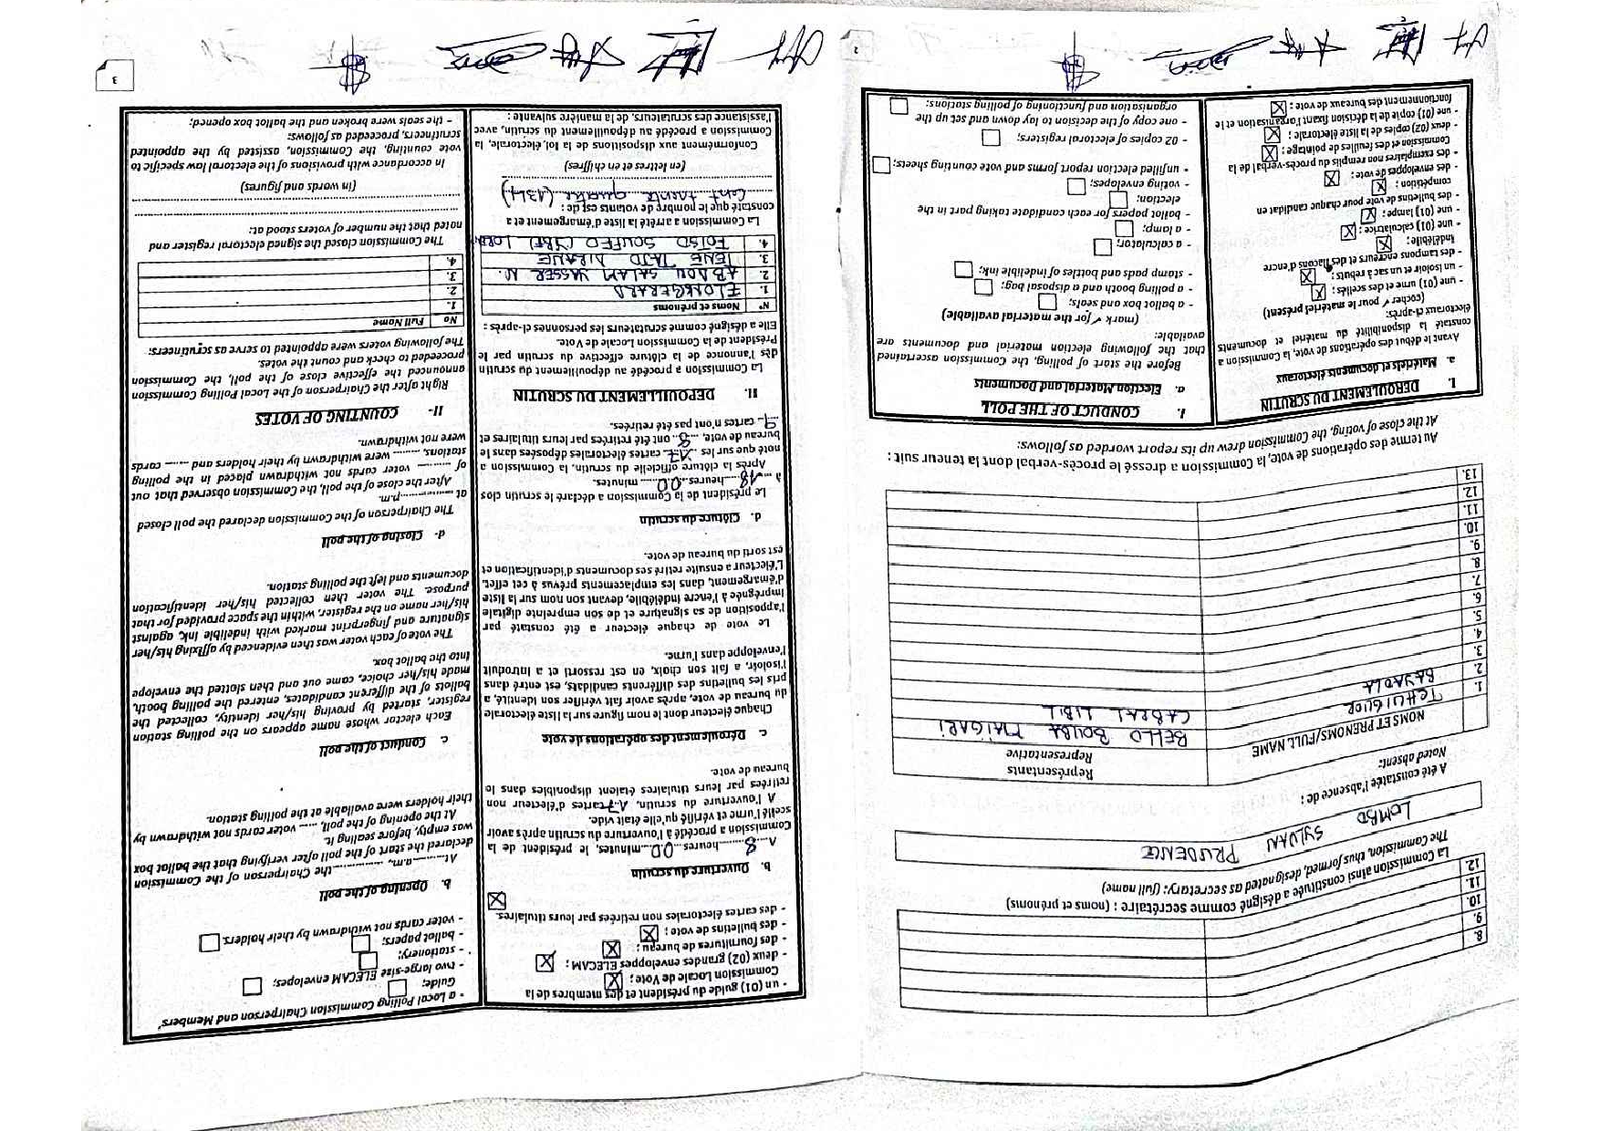 8.
9.
10.
11.
12.
La Commission ainsi constituée a désigné comme secrétaire : (noms et prénoms)
The Commission, thus formed, designated as secretary: (full name)
LOMBO SYLVAN PRUDENCE
A été constatée l'absence de :
Noted absent:
NOMS ET PRENOMS/FULL NAME
Représentants
Representative
1. TCHUIGUOP BELLO BOUBA MAIGARI
2. BAYAOLA CABRAL LIBIL
3.
4.
5.
6.
7.
8.
9.
10.
11.
12.
13.
Au terme des opérations de vote, la Commission a dressé le procès-verbal dont la teneur suit :
At the close of voting, the Commission drew up its report worded as follows:
I. DEROULEMENT DU SCRUTIN
a. Matériels et documents électoraux
Avant le début des opérations de vote, la Commission a
constaté la disponibilité du matériel et documents
électoraux ci-après:
(cocher ✓ pour le matériel présent)
- une (01) urne et des scellés : ☒
- un isoloir et un sac à rebuts : ☒
- des tampons encreurs et des flacons d'encre
indélébile : ☒
- une (01) calculatrice : ☒
- une (01) lampe : ☒
- des bulletins de vote pour chaque candidat en
compétition : ☒
- des enveloppes de vote : ☒
- des exemplaires non remplis du procès-verbal de la
Commission et des feuilles de pointage : ☒
- deux (02) copies de la liste électorale : ☒
- une (01) copie de la décision fixant l'organisation et le
fonctionnement des bureaux de vote : ☒
I. CONDUCT OF THE POLL
a. Election Material and Documents
Before the start of polling, the Commission ascertained
that the following election material and documents are
available:
(mark ✓ for the material available)
- a ballot box and seals; ☐
- a polling booth and a disposal bag; ☐
- stamp pads and bottles of indelible ink; ☐
- a calculator; ☐
- a lamp; ☐
- ballot papers for each candidate taking part in the
election; ☐
- voting envelopes; ☐
- unfilled election report forms and vote counting sheets; ☐
- 02 copies of electoral registers; ☐
- one copy of the decision to lay down and set up the
organisation and functioning of polling stations: ☐
2
- un (01) guide du président et des membres de la
Commission Locale de Vote ; ☒
- deux (02) grandes enveloppes ELECAM ; ☒
- des fournitures de bureau ; ☒
- des bulletins de vote ; ☒
- des cartes électorales non retirées par leurs titulaires. ☒
b. Ouverture du scrutin
A 8 heures 00 minutes, le président de la
Commission a procédé à l'ouverture du scrutin après avoir
scellé l'urne et vérifié qu'elle était vide.
A l'ouverture du scrutin, 17 cartes d'électeur non
retirées par leurs titulaires étaient disponibles dans le
bureau de vote.
c. Déroulement des opérations de vote
Chaque électeur dont le nom figure sur la liste électorale
du bureau de vote, après avoir fait vérifier son identité, a
pris les bulletins des différents candidats, est entré dans
l'isoloir, a fait son choix, en est ressorti et a introduit
l'enveloppe dans l'urne.
Le vote de chaque électeur a été constaté par
l'apposition de sa signature et de son empreinte digitale
imprégnée à l'encre indélébile, devant son nom sur la liste
d'émargement, dans les emplacements prévus à cet effet.
L'électeur a ensuite retiré ses documents d'identification et
est sorti du bureau de vote.
d. Clôture du scrutin
Le président de la Commission a déclaré le scrutin clos
à 18 heures 00 minutes.
Après la clôture officielle du scrutin, la Commission a
noté que sur les 17 cartes électorales déposées dans le
bureau de vote, 8 ont été retirées par leurs titulaires et
9 cartes n'ont pas été retirées.
II. DEPOUILLEMENT DU SCRUTIN
La Commission a procédé au dépouillement du scrutin
dès l'annonce de la clôture effective du scrutin par le
Président de la Commission Locale de Vote.
Elle a désigné comme scrutateurs les personnes ci-après :
N° Noms et prénoms
1. ELONGERARD
2. ABDOU SALAM YASSER N.
3. TENE TATO DIRANE
4. FOTSO SOUFFO CYBEL LOREN
La Commission a arrêté la liste d'émargement et a
constaté que le nombre de votants est de :
Cent trente quatre (134)
(en lettres et en chiffres)
Conformément aux dispositions de la loi électorale, la
Commission a procédé au dépouillement du scrutin, avec
l'assistance des scrutateurs, de la manière suivante :
- a Local Polling Commission Chairperson and Members'
Guide; ☐
- two large-size ELECAM envelopes; ☐
- stationery; ☐
- ballot papers; ☐
- voter cards not withdrawn by their holders. ☐
b. Opening of the poll
At ........ a.m., ............ the Chairperson of the Commission
declared the start of the poll after verifying that the ballot box
was empty, before sealing it.
At the opening of the poll, ..... voter cards not withdrawn by
their holders were available at the polling station.
c. Conduct of the poll
Each elector whose name appears on the polling station
register, started by proving his/her identity, collected the
ballots of the different candidates, entered the polling booth,
made his/her choice, came out and then slotted the envelope
into the ballot box.
The vote of each voter was then evidenced by affixing his/her
signature and fingerprint marked with indelible ink, against
his/her name on the register, within the space provided for that
purpose. The voter then collected his/her identification
documents and left the polling station.
d- Closing of the poll
The Chairperson of the Commission declared the poll closed
at ................p.m.
After the close of the poll, the Commission observed that out
of ......... voter cards not withdrawn placed in the polling
stations, ........ were withdrawn by their holders and ...... cards
were not withdrawn.
II- COUNTING OF VOTES
Right after the Chairperson of Local Polling Commission
announced the effective close of the poll, the Commission
proceeded to check and count the votes.
The following voters were appointed to serve as scrutineers:
No Full Name
1.
2.
3.
4.
The Commission closed the signed electoral register and
noted that the number of voters stood at:
(in words and figures)
In accordance with provisions of the electoral law specific to
vote counting, the Commission, assisted by the appointed
scrutineers, proceeded as follows:
- the seals were broken and the ballot box opened;
3